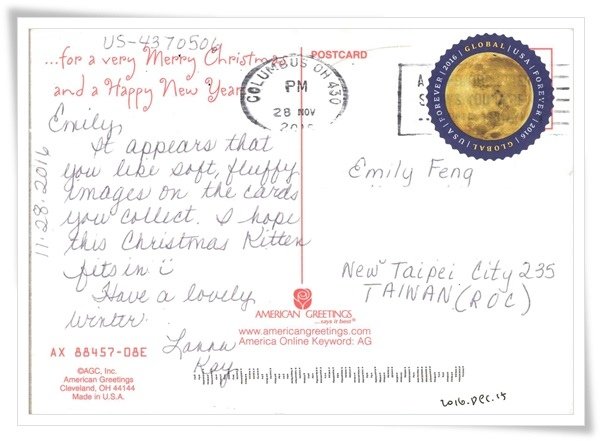 US-4370506
...for a very Merry Christmas
and a Happy New Year
POSTCARD
COLUMBUS OH 430
PM
28 NOV
FOREVER | 2016 | GLOBAL | USA | FOREVER | 2016 | GLOBAL | USA
11-28-2016
Emily,
It appears that
you like soft, fluffy
images on the cards
you collect. I hope
this Christmas Kitten
fits in
Have a lovely
winter.
Kay
Emily Feng
New Taipei City 235
TAIWAN (ROC)
AMERICAN GREETINGS
...says it best
www.americangreetings.com
America Online Keyword: AG
AX 88457-08E
©AGC, Inc.
American Greetings
Cleveland, OH 44144
Made in U.S.A.
2016.Dec.15